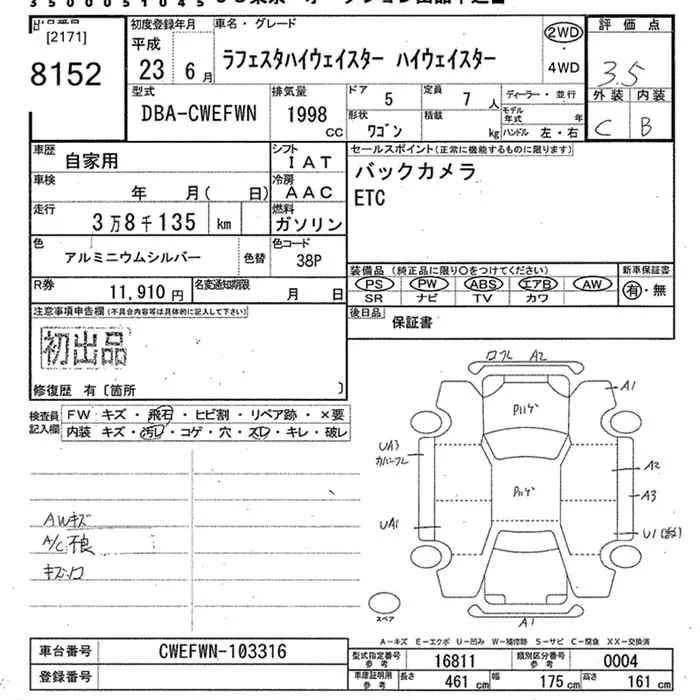 3500051045
出品番号
[2171]
8152
初度登録年月
平成
23 6月
車名・グレード
ラフェスタハイウェイスター ハイウェイスター
2WD
・
4WD
評価点
3.5
外装 内装
C B
型式
DBA-CWEFWN
排気量
1998
CC
ドア 5
定員 7 人
形状 ワゴン
積載 kg
ディーラー・並行
モデル年式 年
ハンドル 左・右
車歴 自家用
シフト IAT
車検 年 月( 日)
冷房 AAC
走行 3万8千135 km
燃料 ガソリン
色 アルミニウムシルバー 色替
色コード 38P
R券 11,910円
名変通知期限 月 日
セールスポイント(正常に機能するものに限ります)
バックカメラ
ETC
装備品(純正品に限り○をつけてください)
PS PW ABS エアB AW
SR ナビ TV カワ
新車保証書
有・無
後日品 保証書
注意事項申告欄(不具合内容等は具体的に記入して下さい)
初出品
修復歴 有〔箇所 〕
検査員記入欄
FW キズ・飛石・ヒビ割・リペア跡・×要
内装 キズ・汚レ・コゲ・穴・スレ・キレ・破レ
AWキズ
A/C不良
A2
A1
UA3
A2
A3
UA1
U1
A1
スペア
A-キズ E-エクボ U-凹み W-補修跡 S-サビ C-腐食 XX-交換済
車台番号 CWEFWN-103316
登録番号
型式指定番号参考 16811
類別区分番号参考 0004
車庫証明用参考 長さ 461cm 幅 175cm 高さ 161cm